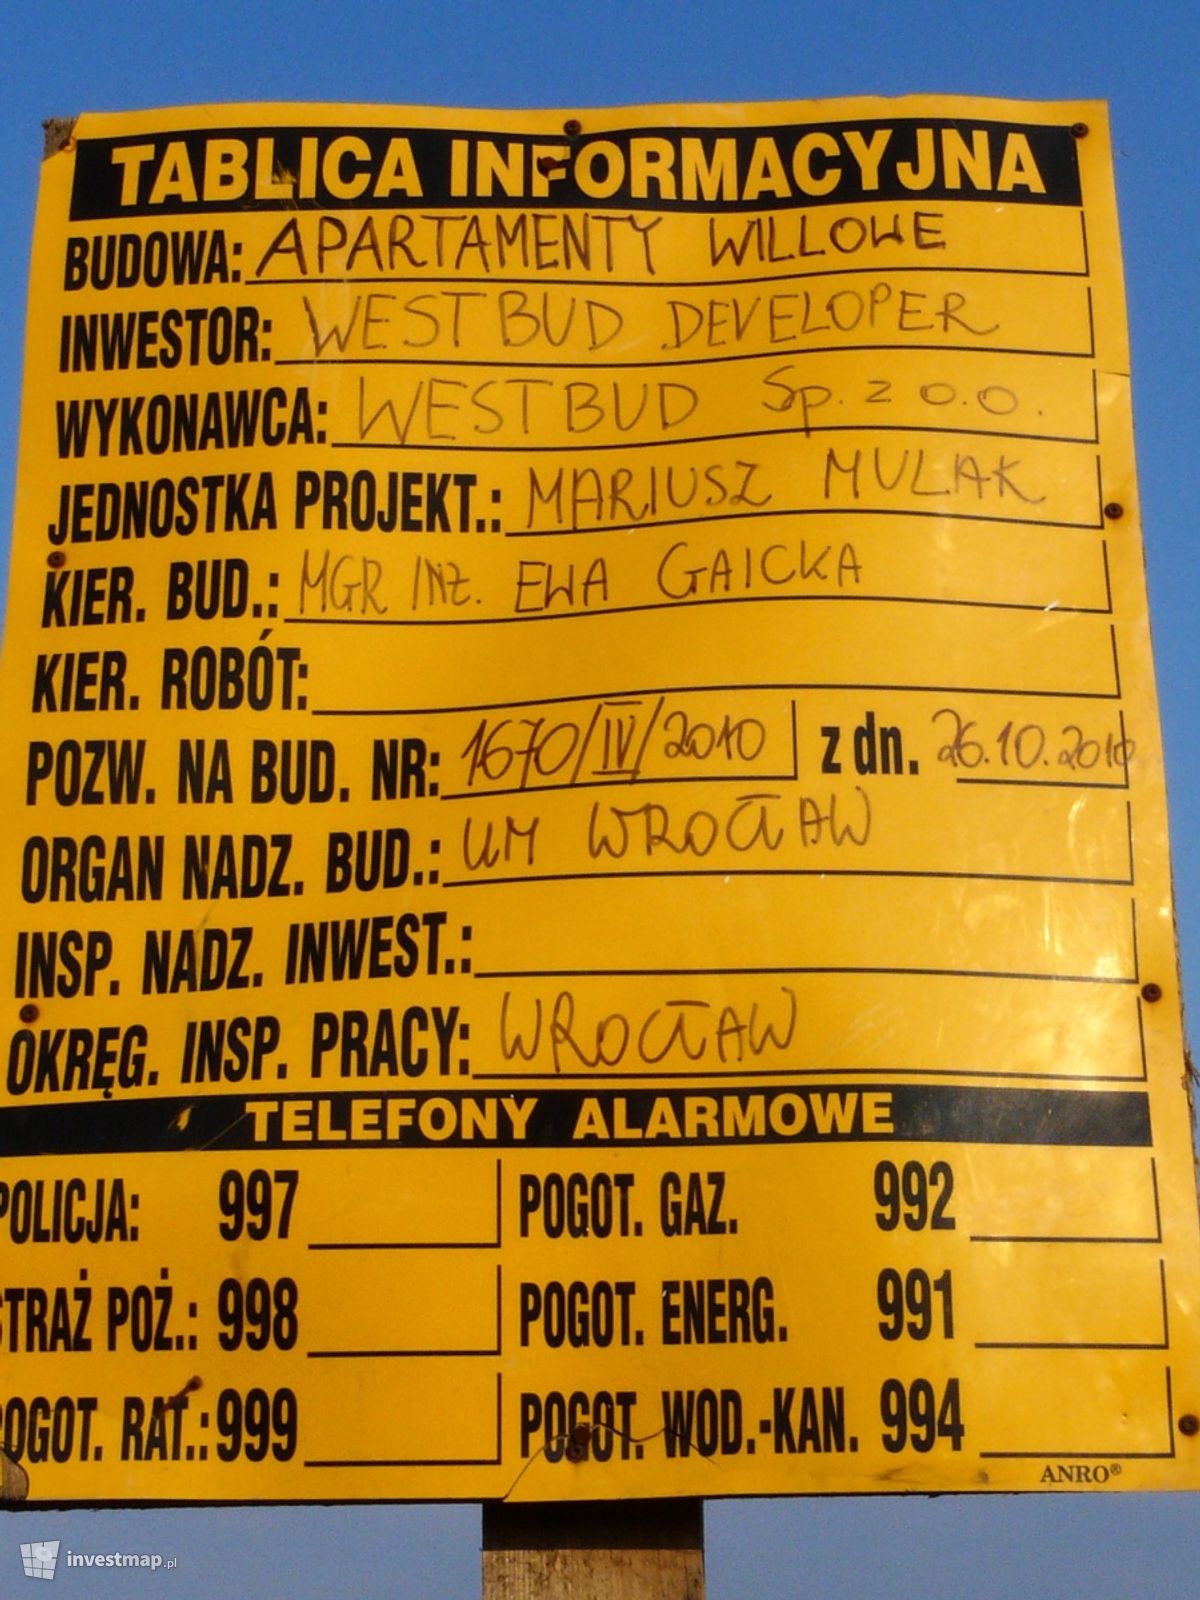 TABLICA INFORMACYJNA
BUDOWA: APARTAMENTY WILLOWE
INWESTOR: WESTBUD DEVELOPER
WYKONAWCA: WESTBUD Sp. z o.o.
JEDNOSTKA PROJEKT.: MARIUSZ MULAK
KIER. BUD.: MGR INŻ. EWA GAICKA
KIER. ROBÓT:
POZW. NA BUD. NR: 1670/IV/2010 z dn. 26.10.2010
ORGAN NADZ. BUD.: UM WROCŁAW
INSP. NADZ. INWEST.:
OKRĘG. INSP. PRACY: WROCŁAW
TELEFONY ALARMOWE
POLICJA: 997 POGOT. GAZ. 992
STRAŻ POŻ.: 998 POGOT. ENERG. 991
POGOT. RAT.: 999 POGOT. WOD.-KAN. 994
ANRO®
investmap.pl